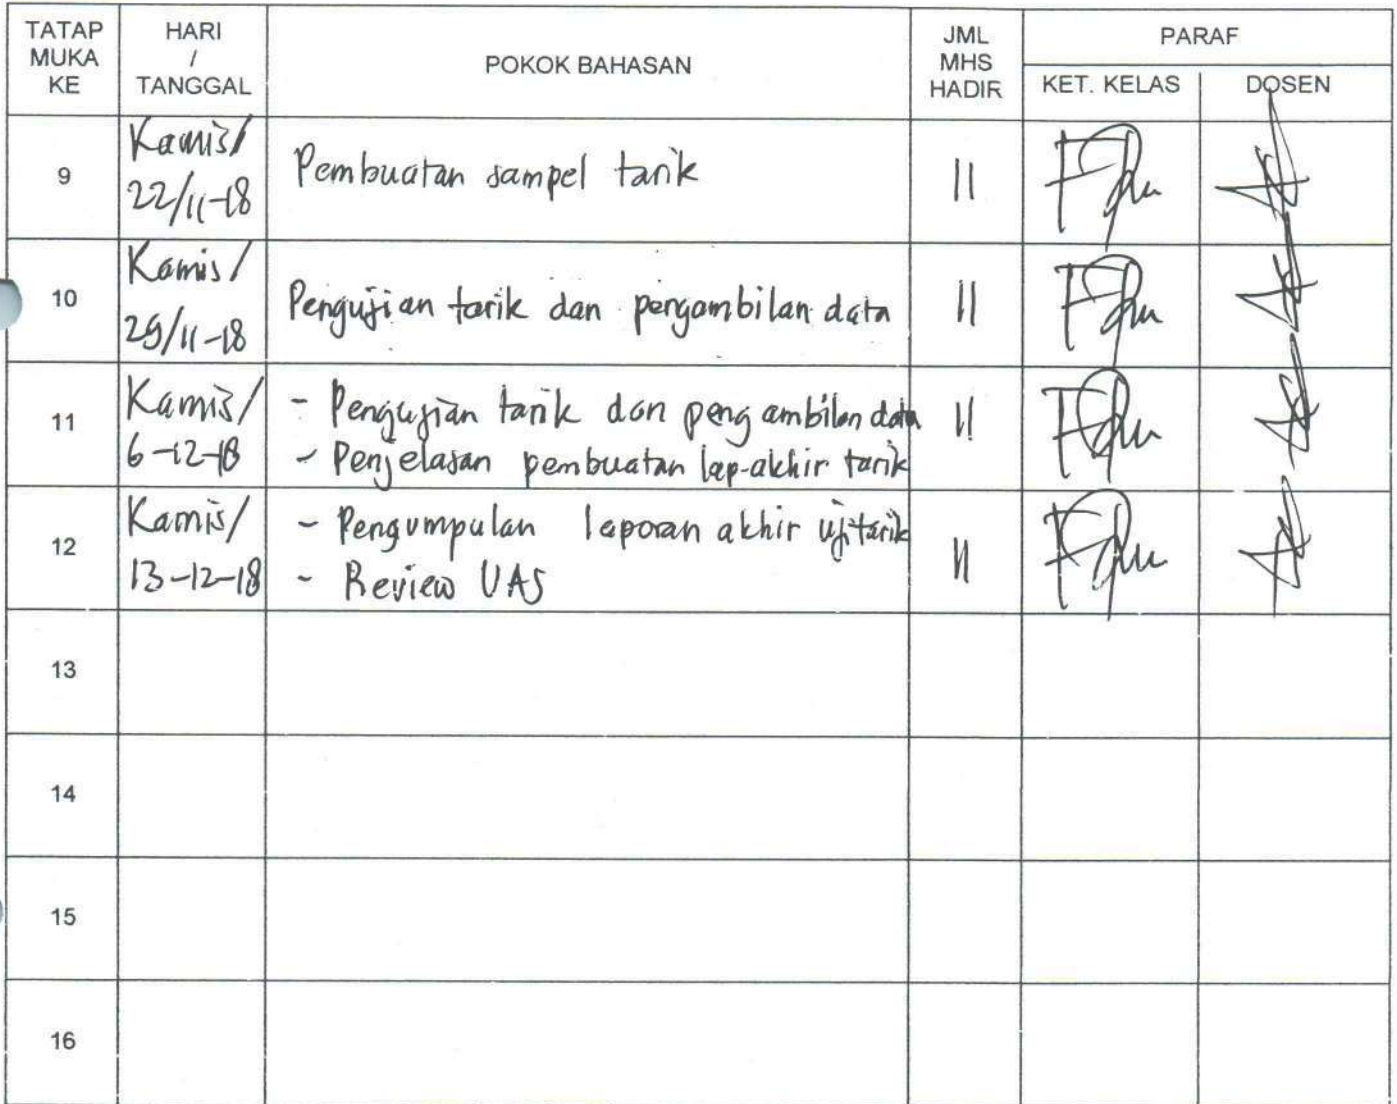 TATAP MUKA KE HARI / TANGGAL POKOK BAHASAN JML MHS HADIR PARAF
KET. KELAS DOSEN
9 Kamis/ 22/11-18 Pembuatan sampel tarik 11
10 Kamis/ 29/11-18 Pengujian tarik dan pengambilan data 11
11 Kamis/ 6-12-18 - Pengujian tarik dan pengambilan data 11
- Penjelasan pembuatan lap-akhir tarik
12 Kamis/ 13-12-18 - Pengumpulan laporan akhir uji tarik 11
- Review UAS
13
14
15
16